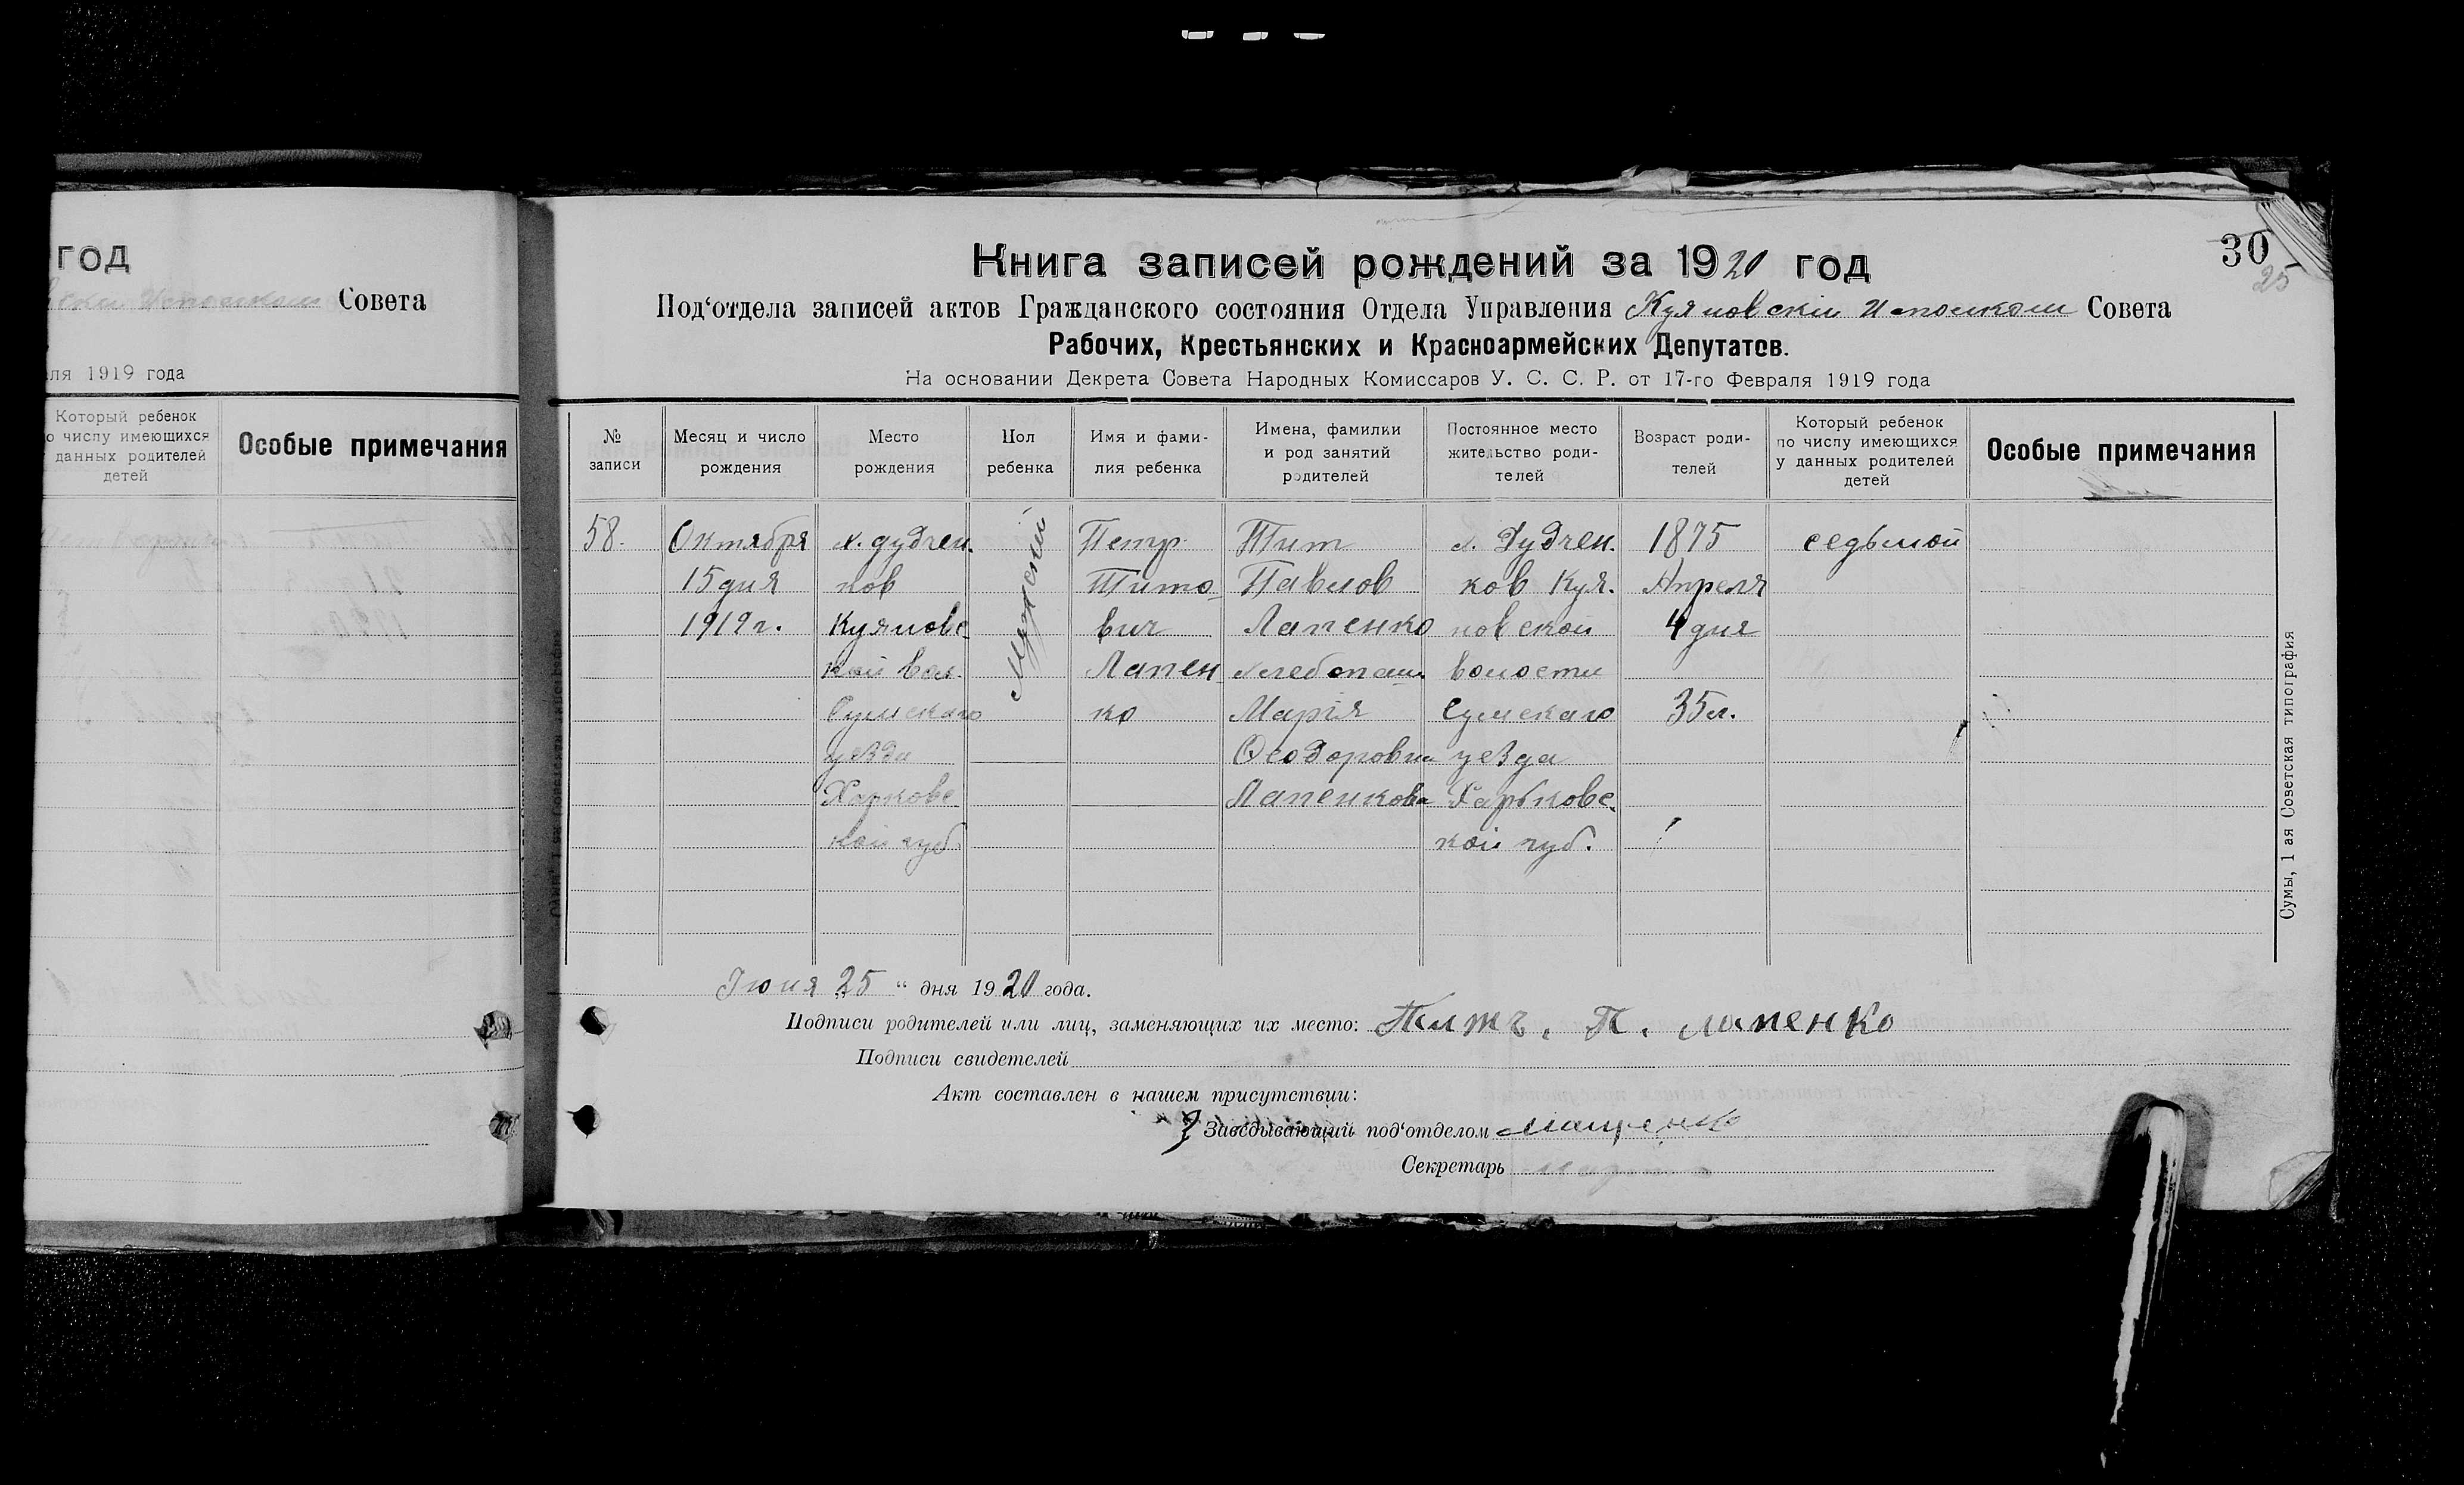 год
Совета
ля 1919 года
Который ребенок
о числу имеющихся
данных родителей
детей
Особые примечания
30
25
Книга записей рождений за 1920 год
Под‘отдела записей актов Гражданского состояния Отдела Управления Куяновскій Исполком Совета
Рабочих, Крестьянских и Красноармейских Депутатов.
На основании Декрета Совета Народных Комиссаров У. С. С. Р. от 17-го Февраля 1919 года
№ записи
Месяц и число рождения
Место рождения
Пол ребенка
Имя и фами-
лия ребенка
Имена, фамилии
и род занятий
родителей
Постоянное место
жительство роди-
телей
Возраст роди-
телей
Который ребенок
по числу имеющихся
у данных родителей
детей
Особые примечания
58.
Октября
15 дня
1919 г.
х. дудчен.
ков
Куяновс
кой вол.
Сумскаго
уезда
Харковс
кой губ.
Мужский
Петр
Тито
вич
Лапен
ко
Тит
Павлов
Лапенко
хлебопаш.
Марія
Феодоровна
Лапенкова
х. Дудчен.
ков Куя.
новской
волости
Сумскаго
уезда
Харьковс.
кой губ.
1875
Апреля
4 дня
35 л.
седьмой
Іюня 25 “ дня 1920 года.
Подписи родителей или лиц, заменяющих их место: Титъ. П. лапенко
Подписи свидетелей
Акт составлен в нашем присутствии:
Заведывающий под‘отделом
Секретарь
Сумы, 1 ая Советская типография